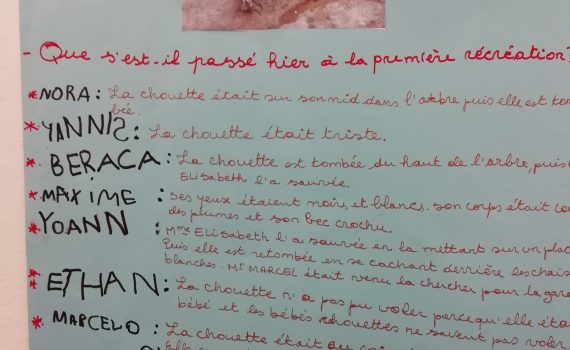 - Que s'est-il passé hier à la première récréation?
* NORA: La chouette était sur son nid dans l'arbre puis elle est tom
bée.
* YANNIS: La chouette était triste.
* BERACA: La chouette est tombée du haut de l'arbre, puis
ELisabeth l'a sauvée.
* MAXIME : Ses yeux étaient noirs et blancs. son corps était cou
des plumes et son bec crochu.
* YOANN : Mme ELiSabeth l'a sauvée en la mettant sur un plac
Puis elle est retombée en se cachant derrière les chais
blanches. Mr MARCEL était venu la chercher pour la gar
* ETHAN: La chouette n'a pas pu voler parcequ'elle éta
bébé et les bébés chouettes ne savent pas voler
* MARCELO : La chouette était au
Elle